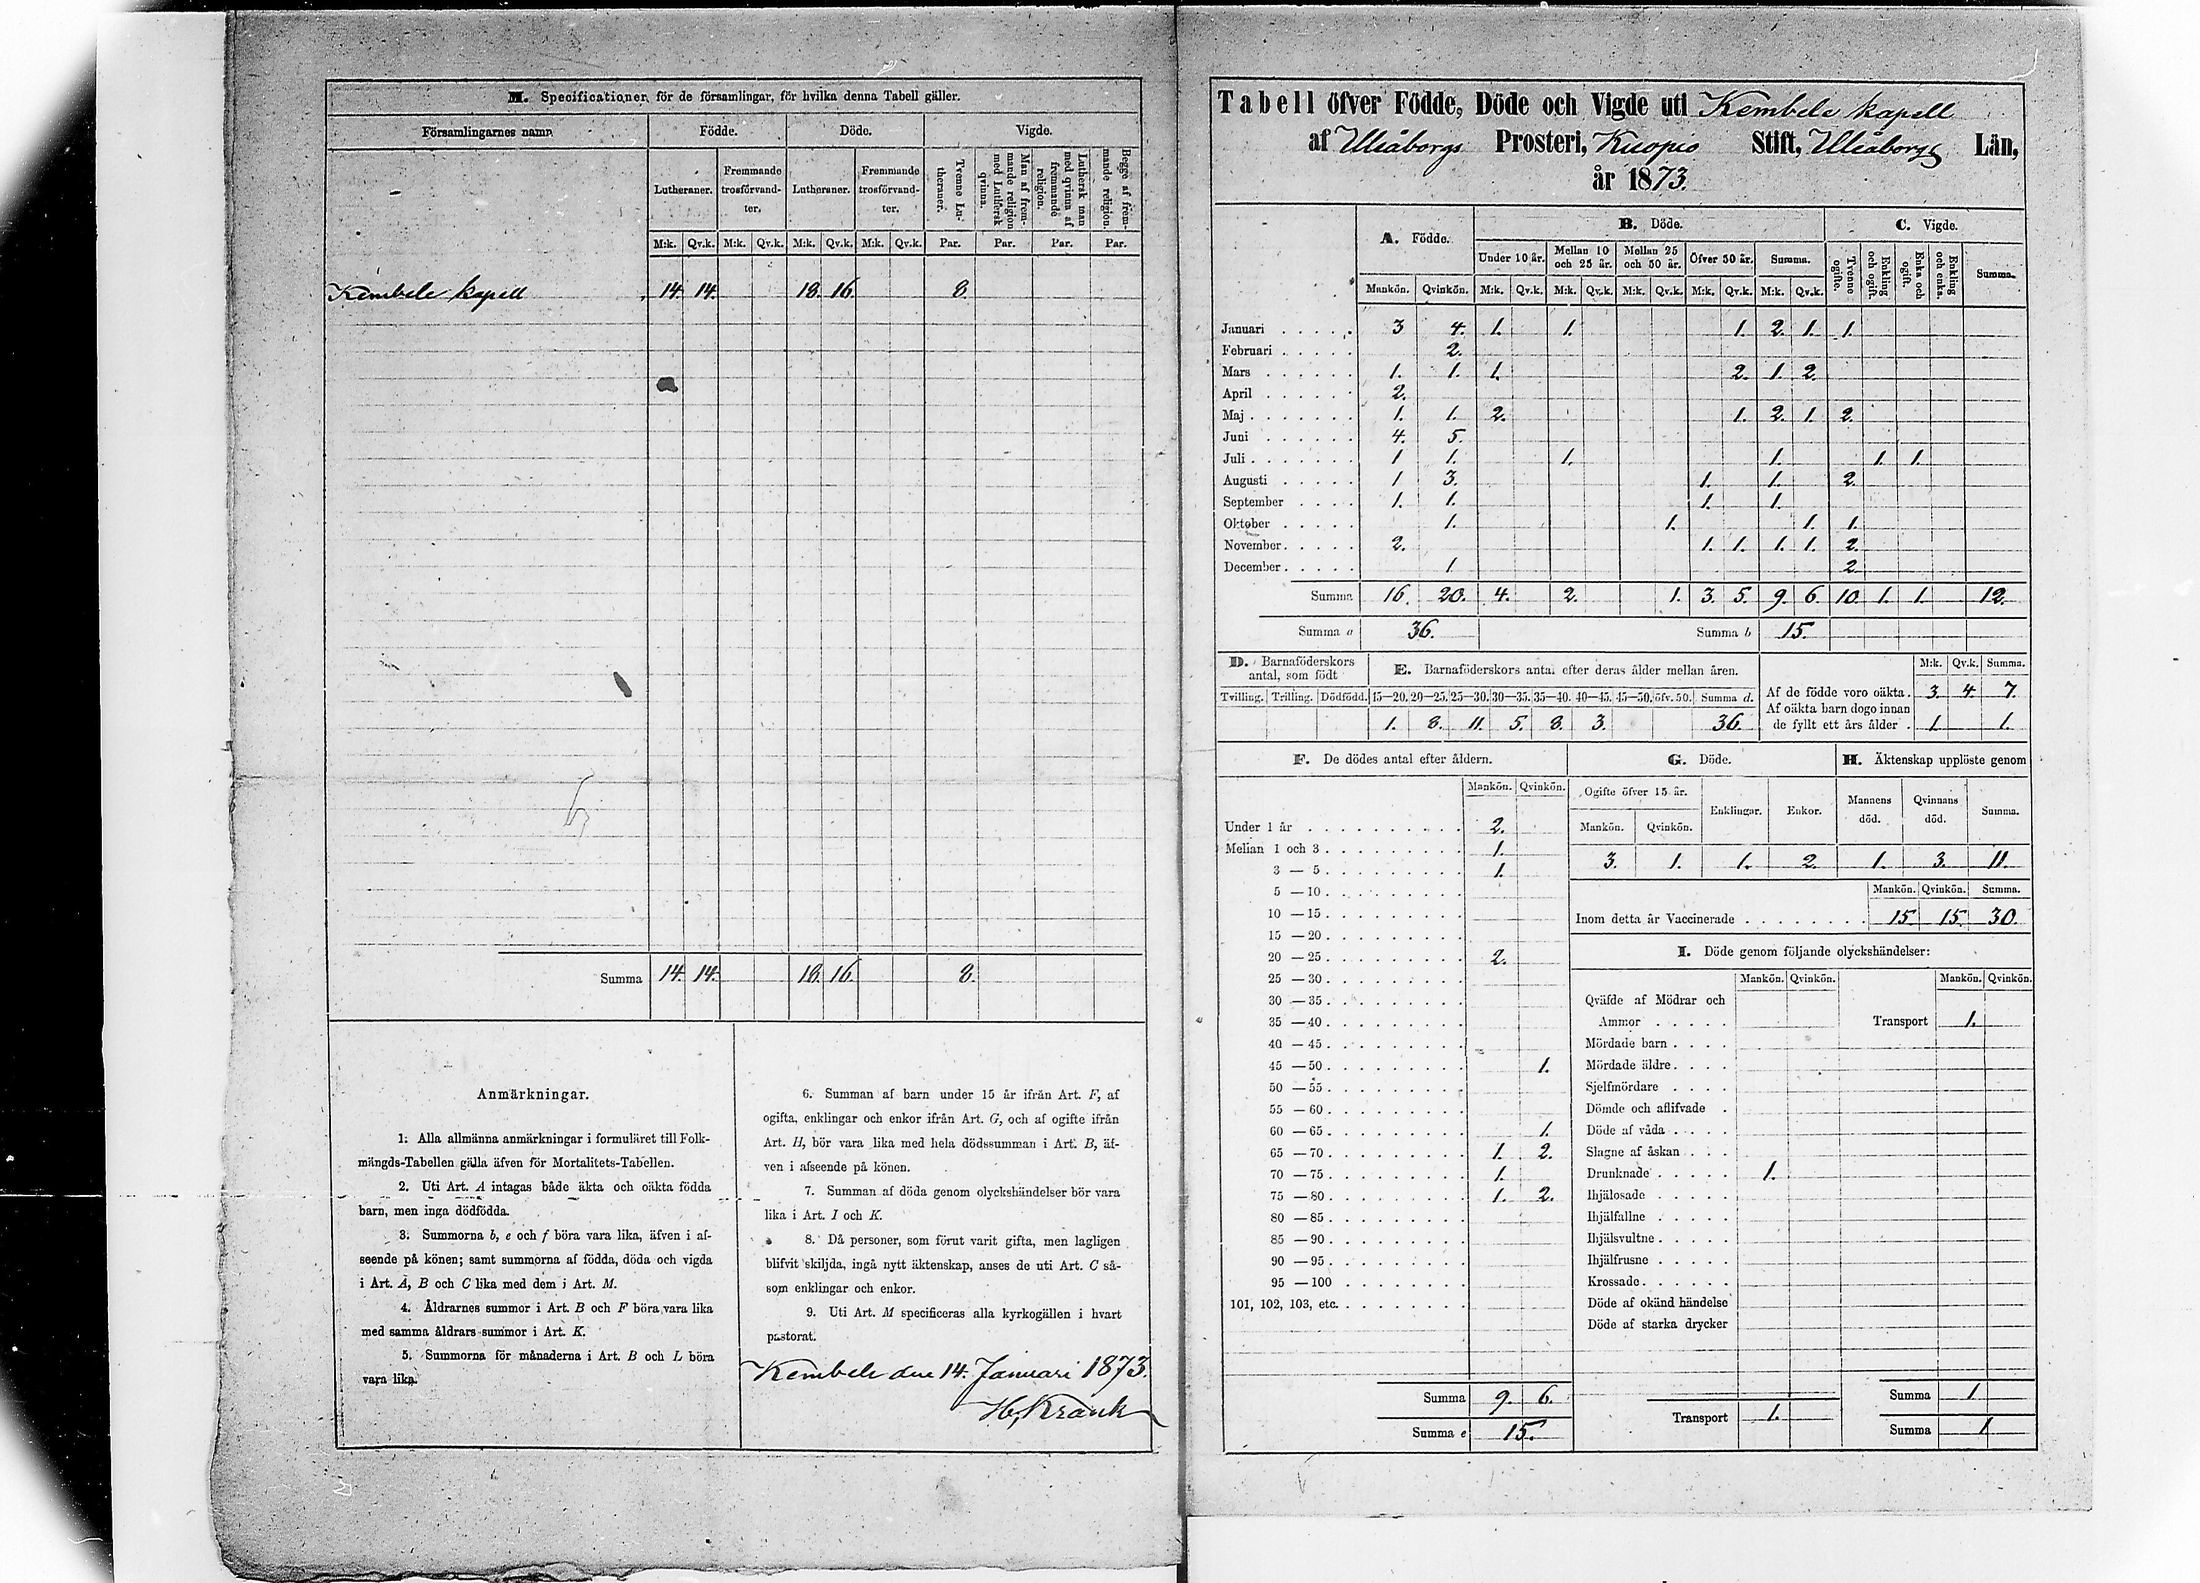 M. Specificationer, för de församlingar, för hvilka denna Tabell gäller.
Församlingarnes namn Födde. Döde. Vigde.
Lutheraner. Fremmande trosförvandter. Lutheraner. Fremmande trosförvandter. Tvenne Lutheraner. Man af fremmande religion med Luthersk qvinna. Luthersk man med qvinna af fremmande religion. Begge af fremmande religion.
M:k. Qv.k. M:k. Qv.k. M:k. Qv.k. M:k. Qv.k. Par. Par. Par. Par.
Kembele kapell 14. 14. 18. 16. 8.
Summa 14. 14. 18. 16. 8.
Anmärkningar.
1. Alla allmänna anmärkningar i formuläret till Folk-
mängds-Tabellen gälla äfven för Mortalitets-Tabellen.
2. Uti Art. A intagas både äkta och oäkta födda
barn, men inga dödfödda.
3. Summorna b, e och f böra vara lika, äfven i af-
seende på könen; samt summorna af födda, döda och vigda
i Art. A, B och C lika med dem i Art. M.
4. Åldrarnes summor i Art. B och F böra vara lika
med samma åldrars summor i Art. K.
5. Summorna för månaderna i Art. B och L böra
vara lika.
6. Summan af barn under 15 år ifrån Art. F, af
ogifta, enklingar och enkor ifrån Art. G, och af ogifte ifrån
Art. H, bör vara lika med hela dödssumman i Art. B, äf-
ven i afseende på könen.
7. Summan af döda genom olyckshändelser bör vara
lika i Art. I och K.
8. Då personer, som förut varit gifta, men lagligen
blifvit skiljda, ingå nytt äktenskap, anses de uti Art. C så-
som enklingar och enkor.
9. Uti Art. M specificeras alla kyrkogällen i hvart
pastorat.
Kembele den 14. Januari 1873.
H. Krank
Tabell öfver Födde, Döde och Vigde uti Kembele kapell
af Uleåborgs Prosteri, Kuopio Stift, Uleåborgs Län,
år 1873.
A. Födde. B. Döde. C. Vigde.
Under 10 år. Mellan 10 och 25 år. Mellan 25 och 50 år. Öfver 50 år. Summa. Tvenne ogifte. Enkling och ogift. Enka och ogift. Enkling och enka. Summa.
Mankön. Qvinkön. M:k. Qv.k. M:k. Qv.k. M:k. Qv.k. M:k. Qv.k. M:k. Qv.k.
Januari 3 4. 1. 1. 1. 2. 1. 1.
Februari 2.
Mars 1. 1. 1. 2. 1. 2.
April 2.
Maj 1. 1. 2. 1. 2. 1. 2.
Juni 4. 5.
Juli 1 1. 1. 1. 1. 1.
Augusti 1 3. 1. 1. 2.
September 1. 1. 1. 1.
Oktober 1. 1. 1. 1.
November 2. 1. 1. 1. 1. 2.
December 1. 2
Summa 16. 20. 4. 2. 1. 3. 5. 9. 6. 10. 1. 1. 12.
Summa a 36. Summa b 15.
D. Barnaföderskors antal, som födt
Tvilling. Trilling. Dödfödd.
E. Barnaföderskors antal efter deras ålder mellan åren.
15—20. 20—25. 25—30. 30—35. 35—40. 40—45. 45—50. öfv. 50. Summa d.
1. 8. 11. 5. 8. 3. 36.
M:k. Qv.k. Summa.
Af de födde voro oäkta. 3. 4. 7.
Af oäkta barn dogo innan
de fyllt ett års ålder. 1. 1.
F. De dödes antal efter åldern.
Mankön. Qvinkön.
Under 1 år 2.
Mellan 1 och 3 1.
3 — 5 1.
5 — 10
10 — 15
15 — 20
20 — 25 2.
25 — 30
30 — 35
35 — 40
40 — 45
45 — 50 1.
50 — 55
55 — 60
60 — 65 1.
65 — 70 1. 2.
70 — 75 1.
75 — 80 1. 2.
80 — 85
85 — 90
90 — 95
95 — 100
101, 102, 103, etc.
Summa 9. 6.
Summa e 15.
G. Döde.
Ogifte öfver 15 år. Enklingar. Enkor.
Mankön. Qvinkön.
3. 1. 1. 2.
H. Äktenskap upplöste genom
Mannens död. Qvinnans död. Summa.
1. 3. 11.
Mankön. Qvinkön. Summa.
Inom detta år Vaccinerade 15. 15. 30.
I. Döde genom följande olyckshändelser:
Mankön. Qvinkön. Mankön. Qvinkön.
Qväfde af Mödrar och
Ammor Transport 1.
Mördade barn
Mördade äldre
Sjelfmördare
Dömde och aflifvade
Döde af våda
Slagne af åskan
Drunknade 1.
Ihjälosade
Ihjälfallne
Ihjälsvultne
Ihjälfrusne
Krossade
Döde af okänd händelse
Döde af starka drycker
Transport 1.
Summa 1
Summa 1